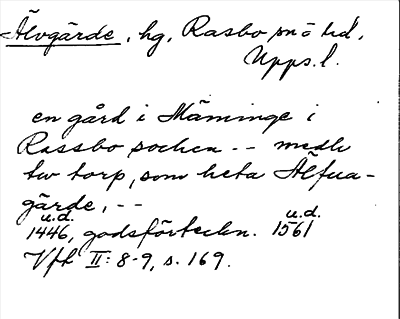 Älvgärde, hg, Rasbo sn o hd,
Upps.l.
en gård i Mäminge i
Rassbo sochen -- medh
tw torp, som heta Älfua-
gärde, --
u.d. u.d.
1446, godsförteckn. 1561
Vfh II: 8-9, s. 169.